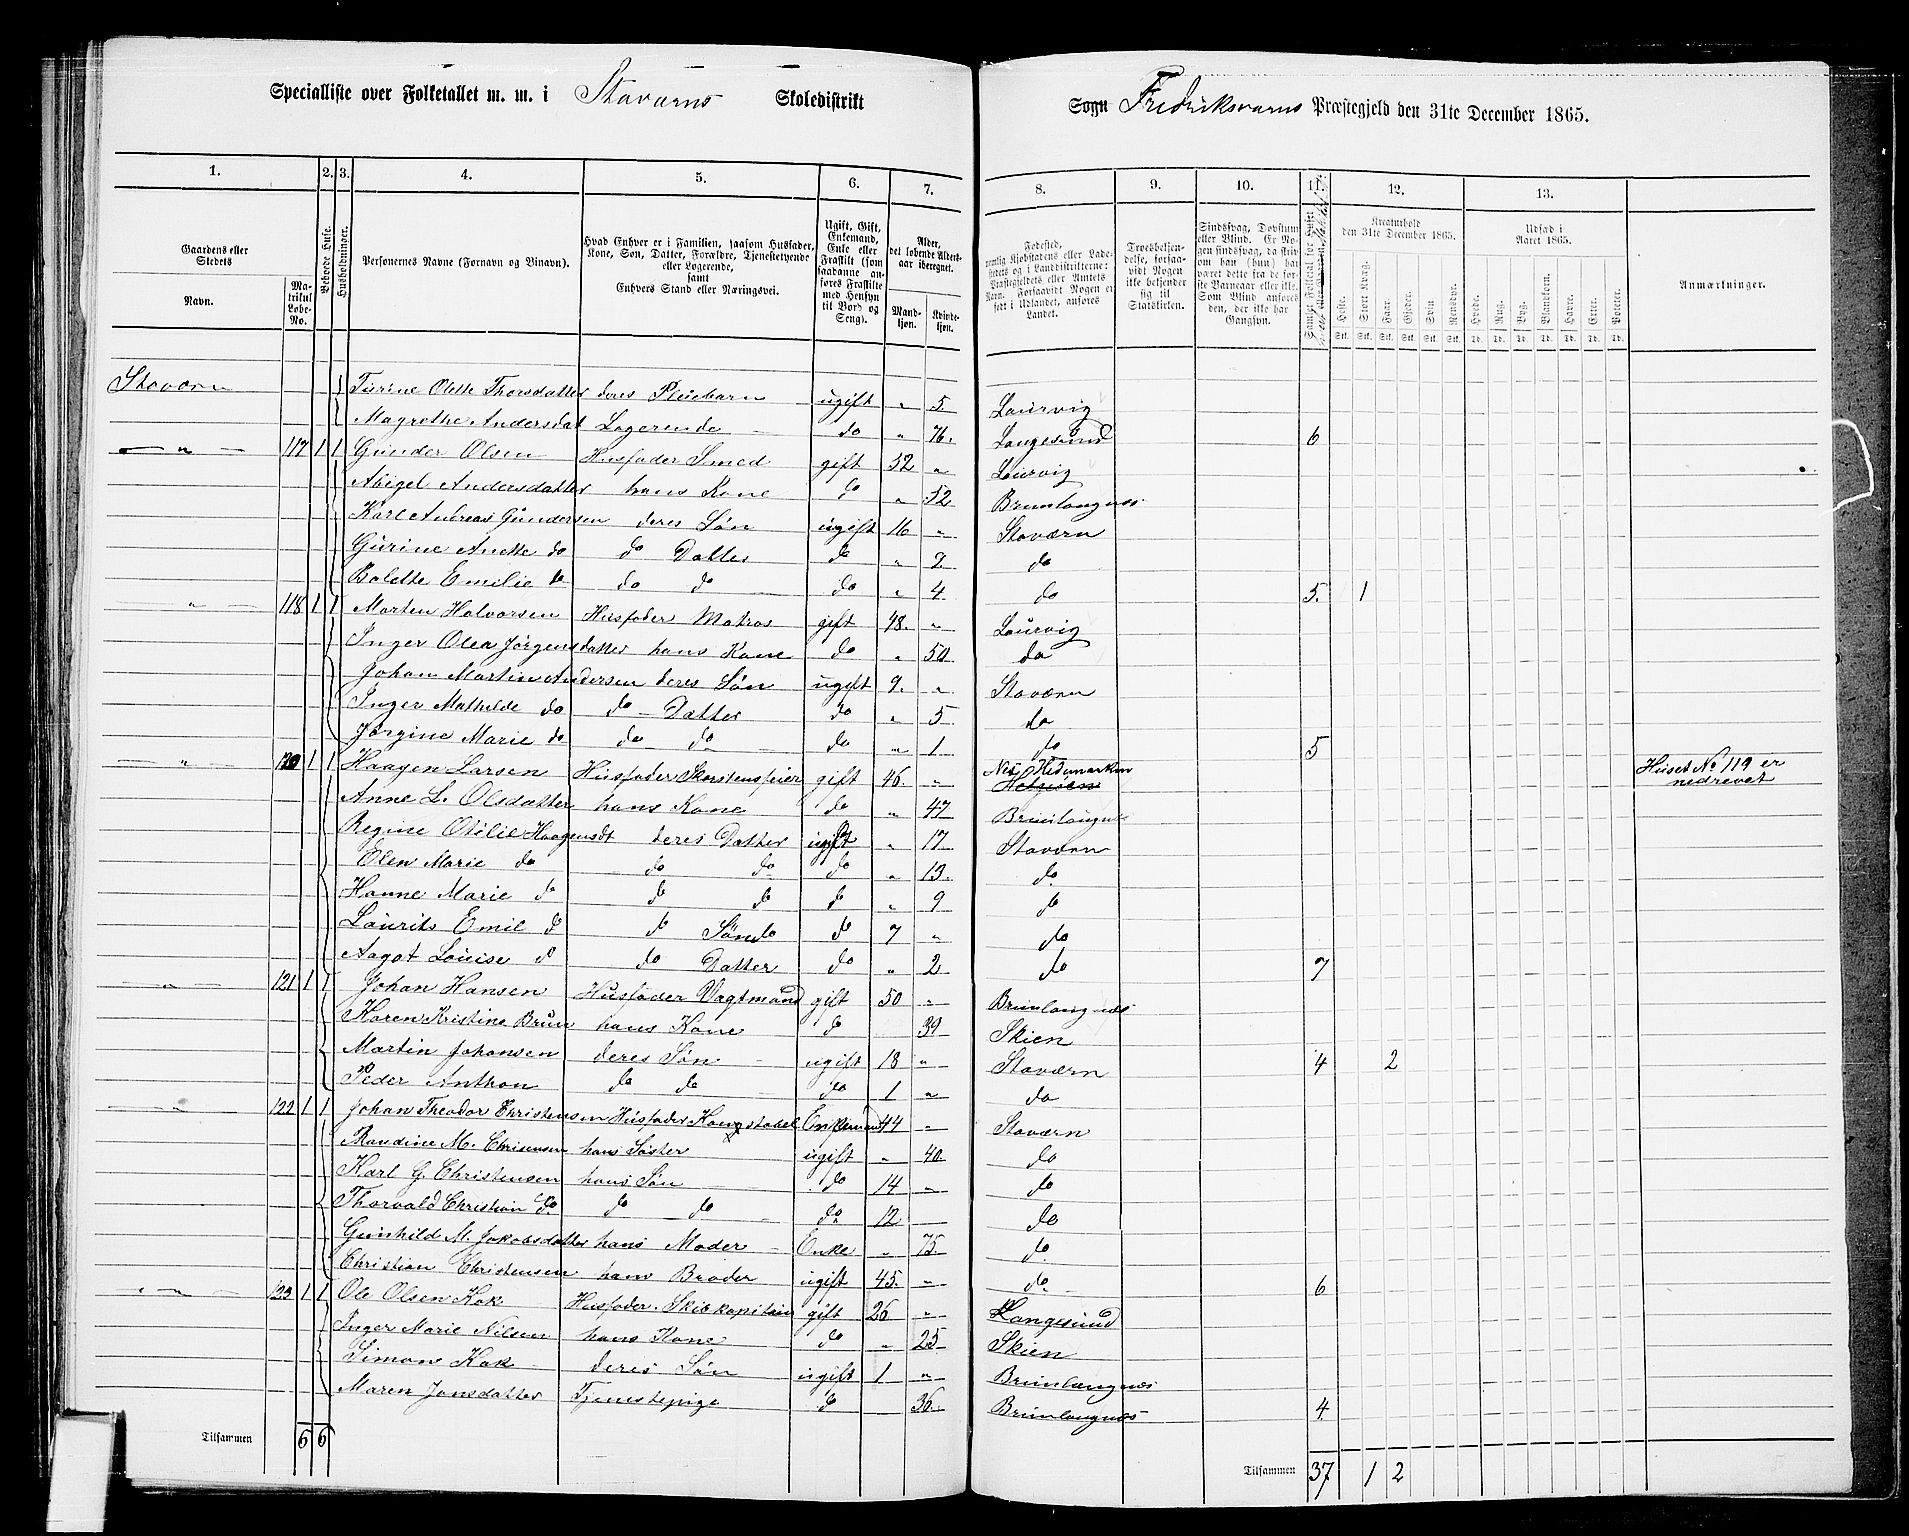 Specialliste over Folketallet m. m. i Staværns Skoledistrikt
Sogn Fredriksværns Præstegjeld den 31te December 1865.
1. 2. 3. 4. 5. 6. 7. 8. 9. 10. 11. 12. 13.
Gaardens eller Stedets
Navn.
Matrikul Løbe-No.
Beboede Huse.
Husholdninger.
Personernes Navne (Fornavn og Tilnavn).
Hvad Enhver er i Familien, saasom Husfader, Kone, Søn, Datter, Forældre, Tjenestetyende eller Logerende, samt Enhvers Stand eller Næringsvei.
Ugift, Gift, Enkemand, Enke eller Fraskilt (som saadanne anføres Fraskilte med Hensyn til Bord og Seng).
Alder, det løbende Aldersaar iberegnet.
Mandkjøn. Kvindekjøn.
Fødested,
Troesbekjendelse, forsaavidt Nogen ikke bekjender sig til Statskirken.
Sindssvag, Døvstum eller Blind. Er Nogen sindssvag, da skrives om han (hun) har været dette fra de første Barneaar eller ikke. Som Blind anføres den, der ikke har Gangsyn.
Kreaturhold den 31te December 1865.
Heste. Stort Kvæg. Faar. Gjeder. Svin. Rensdyr.
Udsæd i Aaret 1865.
Hvede. Rug. Byg. Blandkorn. Havre. Erter. Poteter.
Anmærkninger.
Staværn Turine Olette Thorsdatter deres Pleiebarn ugift " 5. Laurvig
Magrethe Andersdat Logerende do " 76. Langesund 6
" 117 1 1 Gunder Olsen Husfader Smed gift 52 " Laurvig
Abigel Andersdatter hans Kone do " 52 Brunlangnæs
Karl Andreas Gundersen deres Søn ugift 16 " Staværn
Gurine Anette do do Datter do " 2 do
Bolette Emilie do do do do " 4. do 5. 1
" 118 1 1 Morten Halvorsen Husfader Matros gift 48. " Laurvig
Inger Olea Jørgensdatter hans Kone do " 50 do
Johan Martin Andersen deres Søn ugift 9. " Staværn
Inger Mathilde do do Datter do " 5. do
Jørgine Marie do do do do " 1 do 5
" 120 1 1 Haagen Larsen Husfader Skorstensfeier gift 46. " Nes Hedemarken Huset No 119 er nedrevet
Anne L. Olsdatter hans Kone do " 47 Brunlangnæs
Regine Otilie Haagensdt deres Datter ugift " 17 Staværn
Elen Marie do do do do " 13. do
Hanne Marie do do do do " 9 do
Laurits Emil do do Søn do 7 " do
Aagot Louise do do Datter do " 2 do 7
" 121 1 1 Johan Hansen Husfader Vagtmand gift 50 " Brunlangnæs
Karen Kristine Brun hans Kone do 39 Skien
Martin Johansen deres Søn ugift 18 " Staværn 4 2
Peder Anthon do do do 1 " do
" 122 1 1 Johan Theodor Christensen Husfader Konstabel Enkemand 44 " Staværn
Randine M. Chrisensen hans Søster ugift " 40. do
Karl G. Christensen hans Søn do 14 " do
Thorvald Christian do do do do 12 do
Gunhild M. Jakobsdatter hans Moder Enke " 75. do
Christian Christensen hans Broder ugift 45. " do 6
" 123 1 1 Ole Olsen Kok Husfader Skibskapitain gift 26 " Langesund
Inger Marie Nilsen hans Kone do " 25 Skien
Simon Kok deres Søn ugift 1 " Brunlangnæs
Maren Jonsdatter Tjenestepige do 36. Brunlangnæs 4
Tilsammen 6 6
Tilsammen 37 1 2